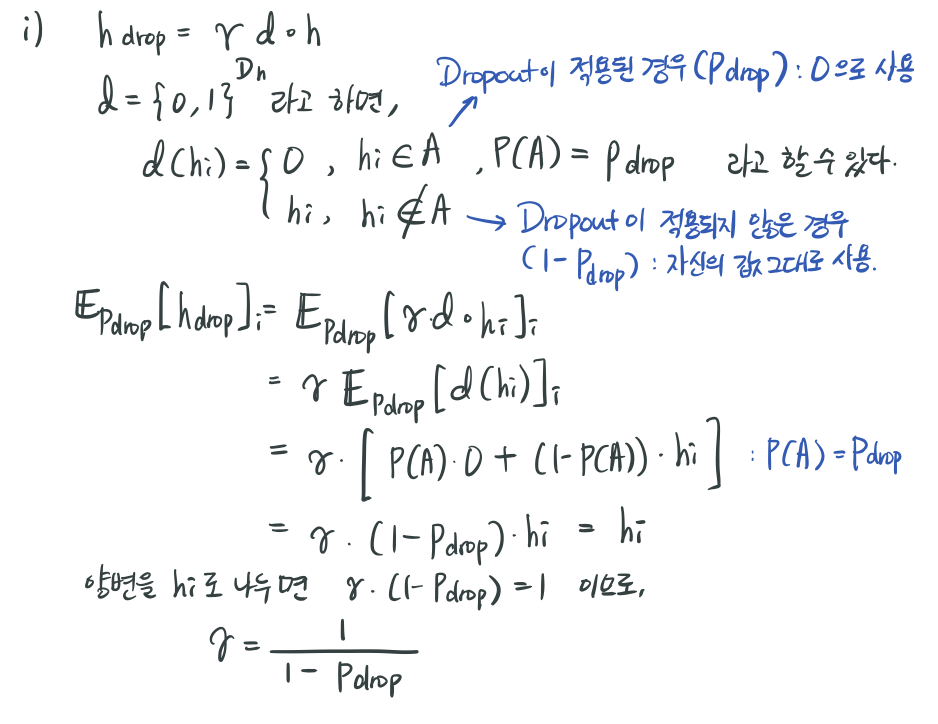 i) h drop = γ d∘h
d = {0,1}^Dh 라고 하면,
Dropout이 적용된 경우 (Pdrop) : 0으로 사용
d(hi) = { 0 , hi ∈ A , P(A) = Pdrop 라고 할 수 있다.
hi, hi ∉ A → Dropout이 적용되지 않은 경우
(1-Pdrop) : 자신의 값 그대로 사용.
𝔼Pdrop[hdrop]i = 𝔼Pdrop[γ·d∘hi]i
= γ 𝔼Pdrop[d(hi)]i
= γ·[P(A)·0 + (1-P(A))·hi] : P(A) = Pdrop
= γ·(1-Pdrop)·hi = hi
양변을 hi로 나누면 γ·(1-Pdrop) = 1 이므로,
γ = 1
1 - Pdrop